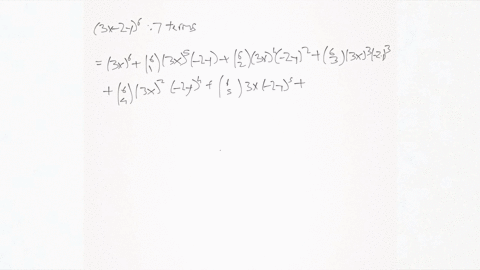 (3x-2y)^6 ∴ 7 terms
= (3x)^6 + (6 1)(3x)^5(-2y) + (6 2)(3x)^4(-2y)^2 + (6 3)(3x)^3(-2y)^3
+ (6 4)(3x)^2 (-2y)^4 + (6 5) 3x(-2y)^5 +